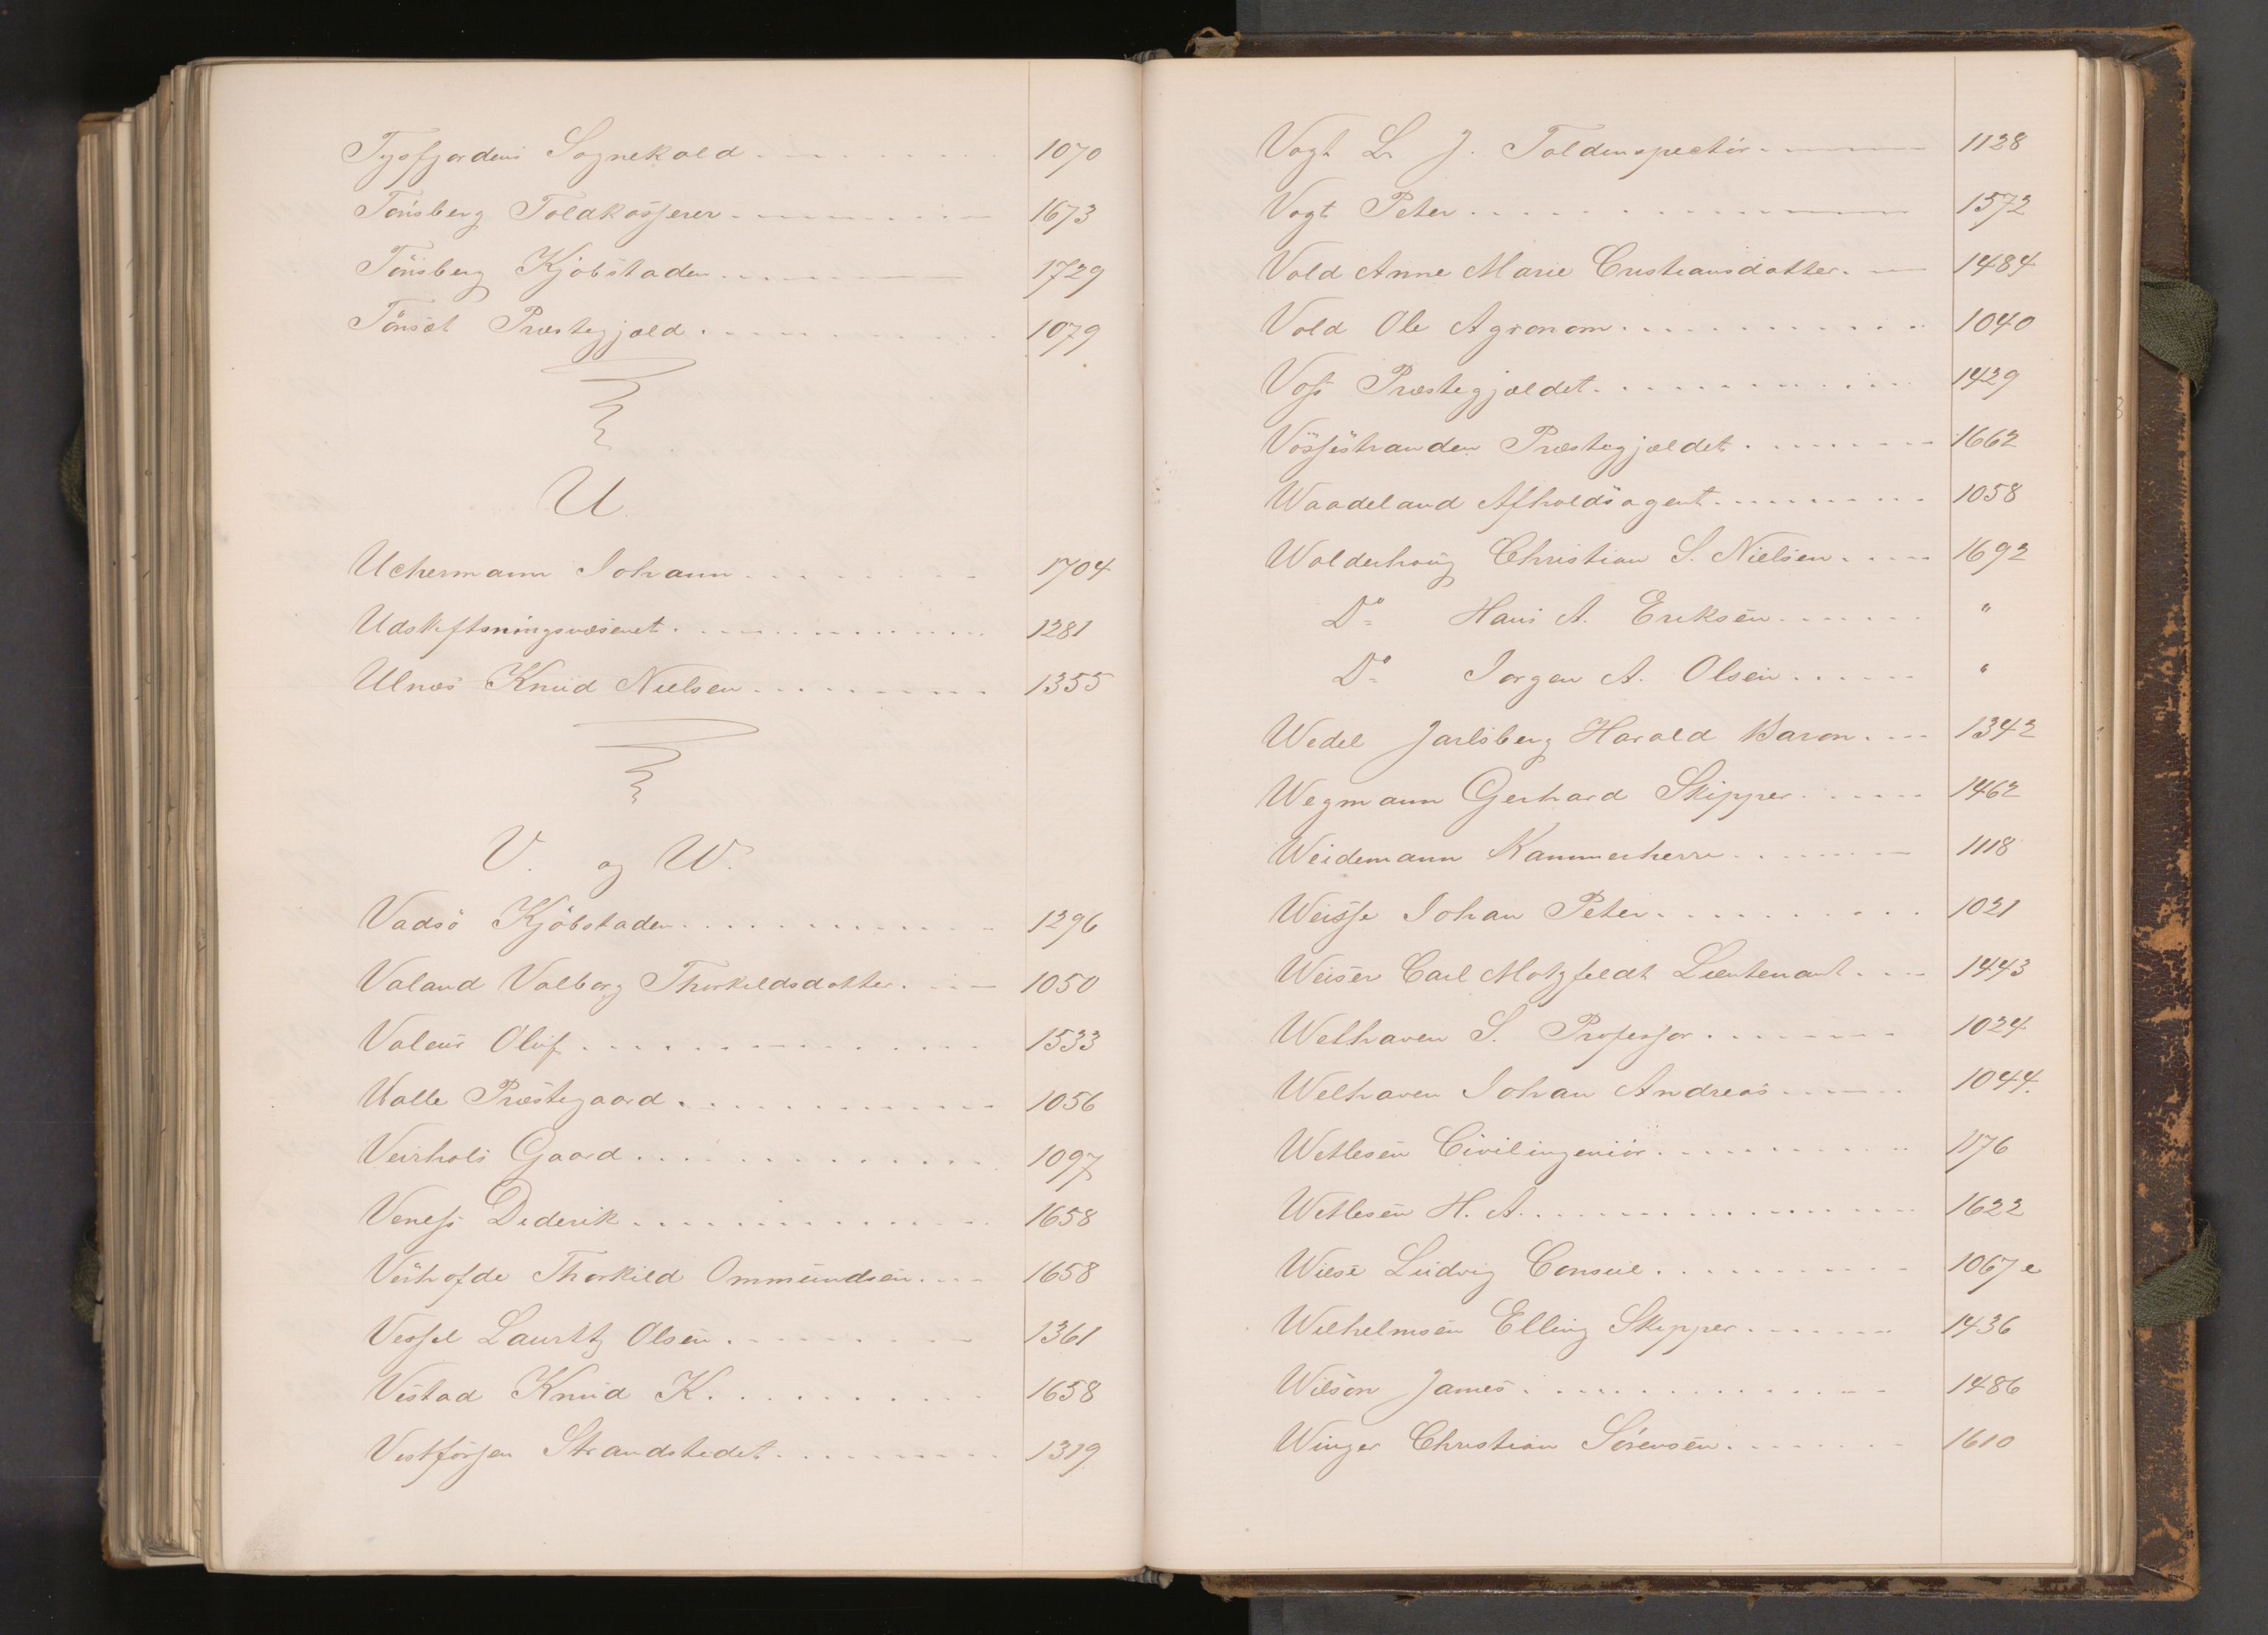 Tysfjordens Sognekald 1070
Tönsberg Toldkasserer 1673
Tönsberg Kjöbstaden 1729
Tönset Præstegjæld 1079
U
Uchermann Johann 1704
Udskiftsningsvæsenet 1281
Ulnæs Knud Nielsen 1355
V. og W.
Vadsö Kjöbstaden 1296
Valand Valborg Thorkildsdatter 1050
Valeur Oluf 1533
Valle Præstegaard 1056
Veirhols Gaard 1097
Veness Dederik 1658
Verhofde Thorkild Ommundsen 1658
Vessel Lauritz Olsen 1361
Vestad Knud K. 1658
Vestfossen Strandstedet 1319
Vogt L. J. Toldinspectör 1128
Vogt Peter 1572
Vold Anne Marie Cristiansdatter 1484
Vold Ole Agronom 1040
Voss Præstegjældet 1429
Vossestranden Præstegjældet 1662
Waadeland Afholdsagent 1058
Walderhaug Christian S. Nielsen 1692
Do Hans A. Eriksen "
Do Jörgen A. Olsen "
Wedel Jarlsberg Harald Baron 1342
Wegmann Gerhard Skipper 1462
Weidemann Kammerherre 1118
Weisse Johan Peter 1021
Weiser Carl Motzfeldt Lieutenant 1443
Welhaven S. Professor 1024
Welhaven Johan Andreas 1044.
Wetlesen Civilingeniör 1176
Wetlesen H. A. 1622
Wiese Ludvig Consul 1067 e
Wilhelmsen Elling Skipper 1436
Wilson James 1486
Winger Christian Sörensen 1610